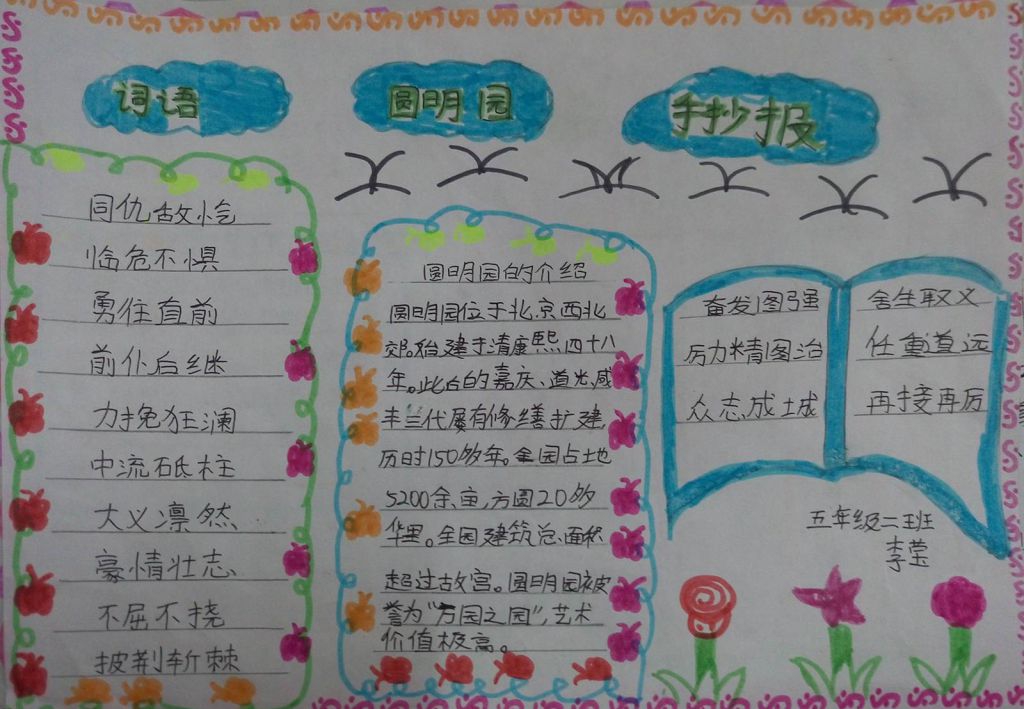 词语
圆明园
手抄报
同仇敌忾
临危不惧
勇往直前
前仆后继
力挽狂澜
中流砥柱
大义凛然
豪情壮志
不屈不挠
披荆斩棘
圆明园的介绍
圆明园位于北京西北
郊。始建于清康熙四十八
年。此后的嘉庆、道光、咸
丰三代屡有修缮扩建
历时150多年。全园占地
5200余亩,方圆20多
华里。全园建筑总面积
超过故宫。圆明园被
誉为“万园之园”,艺术
价值极高。
奋发图强
厉力精图治
众志成城
舍生取义
任重道远
再接再厉
五年级二班
李莹